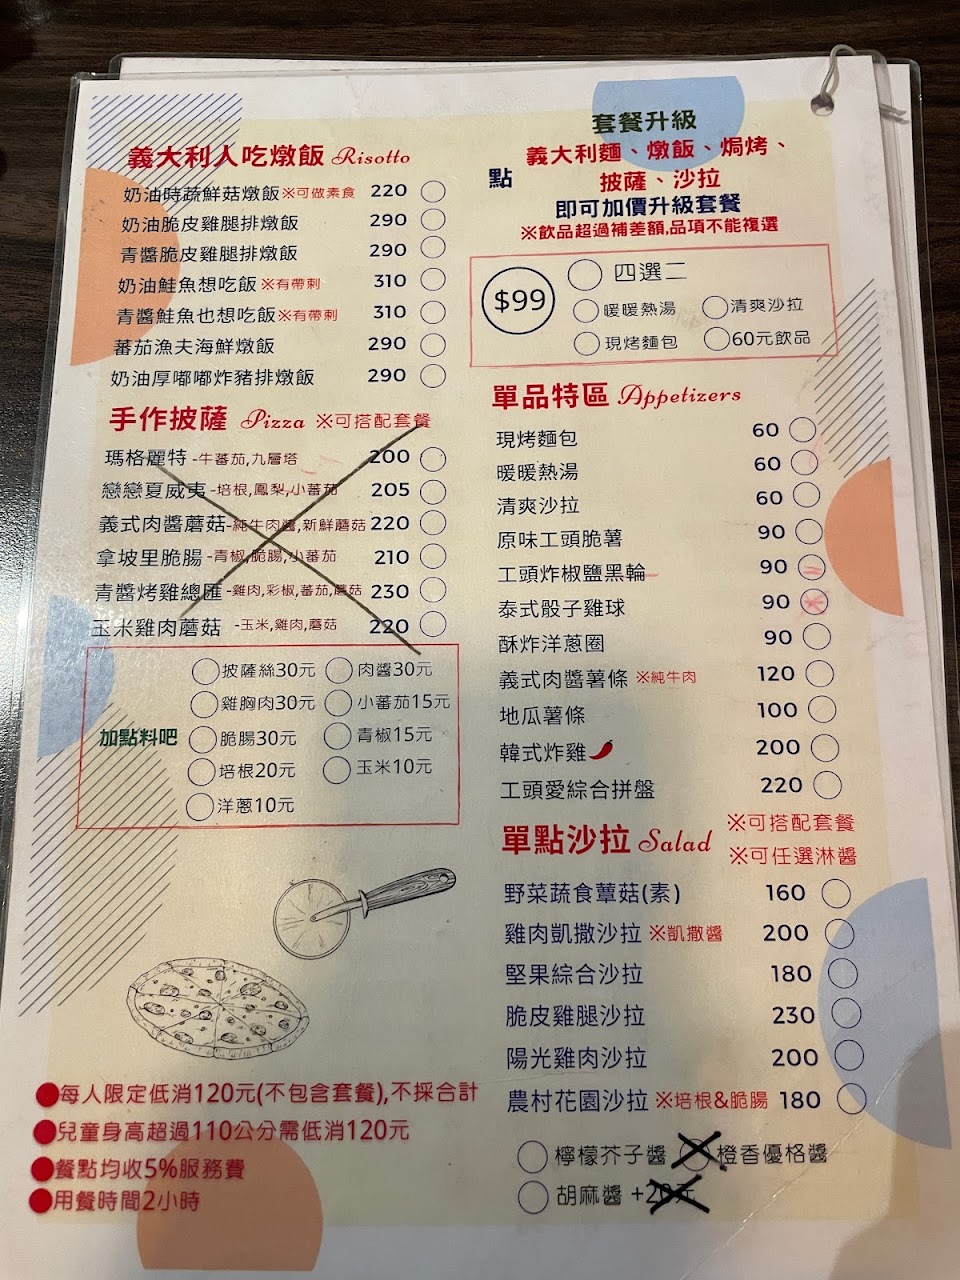 義大利人吃燉飯 Risotto
奶油時蔬鮮菇燉飯※可做素食 220
奶油脆皮雞腿排燉飯 290
青醬脆皮雞腿排燉飯 290
奶油鮭魚想吃飯※有帶刺 310
青醬鮭魚也想吃飯※有帶刺 310
蕃茄漁夫海鮮燉飯 290
奶油厚嘟嘟炸豬排燉飯 290
手作披薩 Pizza ※可搭配套餐
瑪格麗特-牛蕃茄,九層塔 200
戀戀夏威夷-培根,鳳梨,小蕃茄 205
義式肉醬蘑菇-純牛肉醬,新鮮蘑菇 220
拿坡里脆腸-青椒,脆腸,小蕃茄 210
青醬烤雞總匯-雞肉,彩椒,蕃茄,蘑菇 230
玉米雞肉蘑菇 -玉米,雞肉,蘑菇 220
加點料吧
披薩絲30元 肉醬30元
雞胸肉30元 小蕃茄15元
脆腸30元 青椒15元
培根20元 玉米10元
洋蔥10元
●每人限定低消120元(不包含套餐),不採合計
●兒童身高超過110公分需低消120元
●餐點均收5%服務費
●用餐時間2小時
套餐升級
點 義大利麵、燉飯、焗烤、
披薩、沙拉
即可加價升級套餐
※飲品超過補差額,品項不能複選
$99
四選二
暖暖熱湯 清爽沙拉
現烤麵包 60元飲品
單品特區 Appetizers
現烤麵包 60
暖暖熱湯 60
清爽沙拉 60
原味工頭脆薯 90
工頭炸椒鹽黑輪 90
泰式骰子雞球 90
酥炸洋蔥圈 90
義式肉醬薯條 ※純牛肉 120
地瓜薯條 100
韓式炸雞 200
工頭愛綜合拼盤 220
單點沙拉 Salad ※可搭配套餐
※可任選淋醬
野菜蔬食蕈菇(素) 160
雞肉凱撒沙拉 ※凱撒醬 200
堅果綜合沙拉 180
脆皮雞腿沙拉 230
陽光雞肉沙拉 200
農村花園沙拉 ※培根&脆腸 180
檸檬芥子醬 橙香優格醬
胡麻醬 +20元